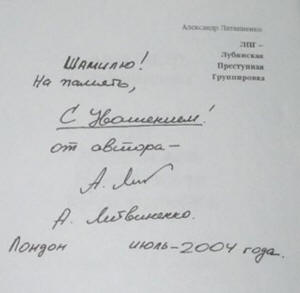 Александр Литвиненко
ЛПГ –
Лубянская
Преступная
Группировка
Шамилю!
На память,
С Уважением!
от автора –
А. Лит
А. Литвиненко.
Лондон июль – 2004 года.